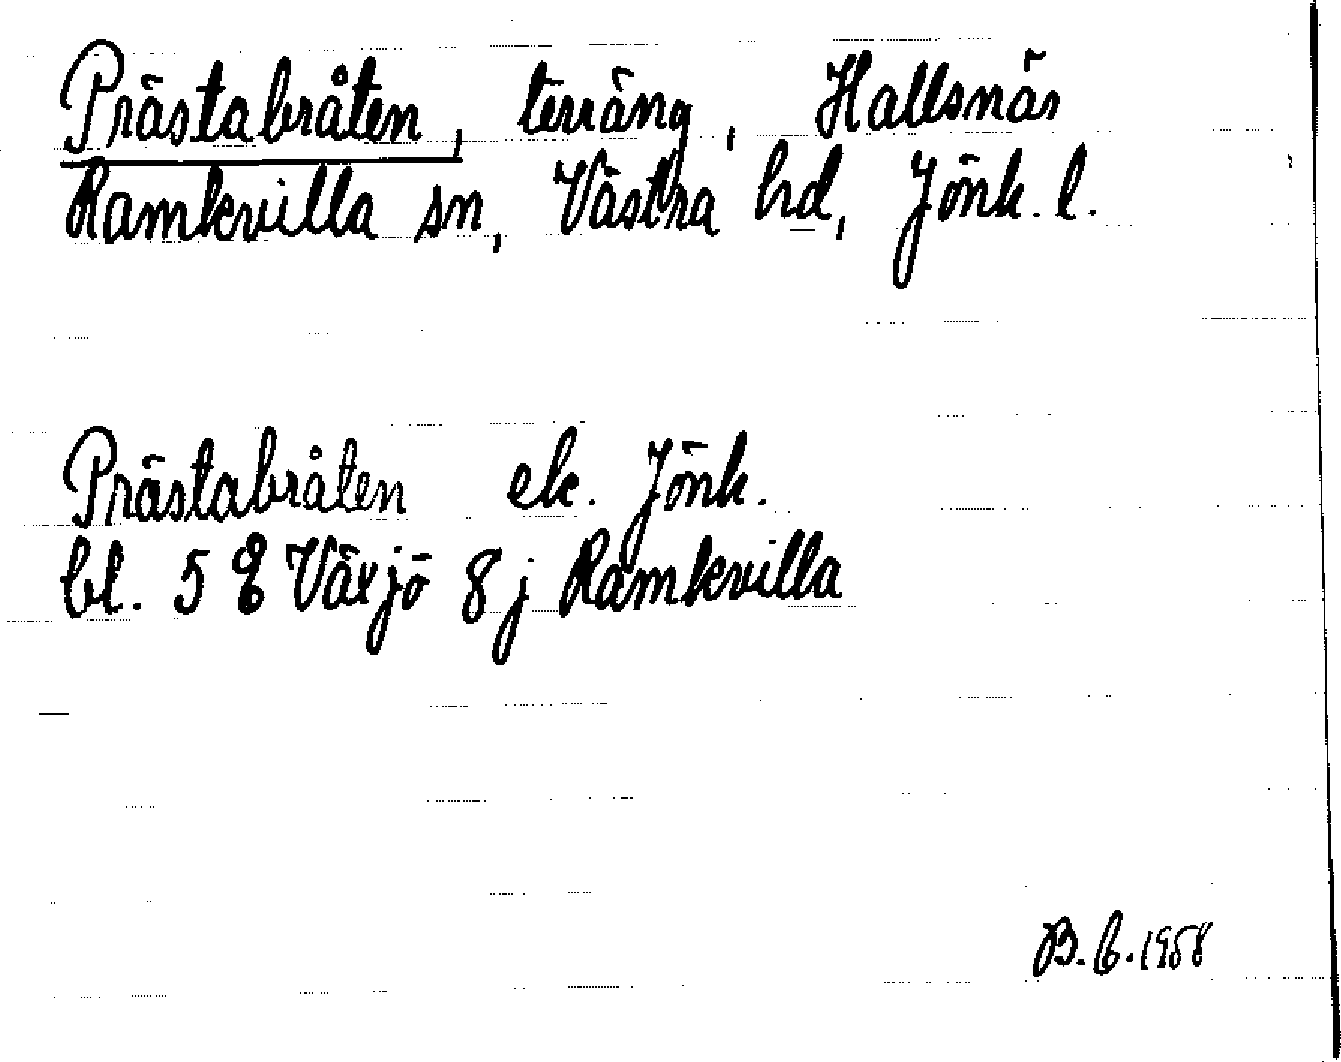 Prästabråten, terräng, Hallsnäs
Ramkvilla sn, Västra hd, Jönk. l.
Prästabråten ek. Jönk.
bl. 5 E Växjö 8 j Ramkvilla
B. 1958